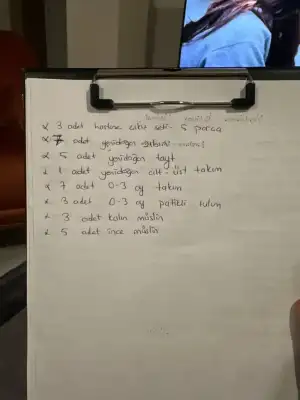 x 3 adet hastane çıkış seti - 5 parça
x 7 adet yenidoğan zıbını
x 5 adet yenidoğan tayt
x 1 adet yenidoğan alt-üst takım
x 7 adet 0-3 ay takım
x 3 adet 0-3 ay patikli tulum
x 3 adet kalın müslin
x 5 adet ince müslin